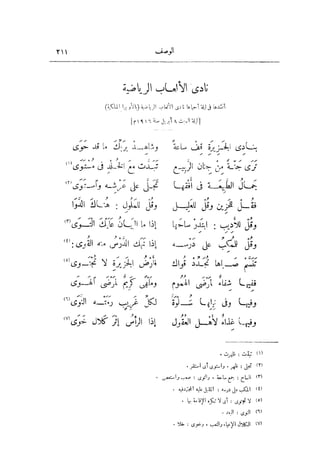 الوصف ٢١١
نادى الألعاب الرياضية
أنشدها فى ليلة أحياها نادى الألعاب الرياضية (بالأوبرا الملكية)
[ليلة السبت ٨ أبريل سنة ١٩١٦م]
بنادى الجزيرة قف ساعةً وشاهد بربّك ما قد حوى
ترى جنةً من جنان الربيع تبدّت مع الخلد فى مستوى(١)
جمال الطبيعة فى أفقها تجلّى على عرشه واستوى(٢)
فقل للحزين وقل للعليل وقل للملول : هناك الدوا
وقل للأديب : ابتدر ساحها إذا ما البيان عليك التوى(٣)
وقل للمكبّ على درسه إذا نهك الدرس منه القوى :(٤)
تنسّم صباها تجدّد قواك فأرض الجزيرة لا تُجتوى(٥)
ففيها شفاء لمرضى الهموم وملهى كريم لمرضى الهوى
وفيها وفى نيلها سلوة لكل غريب رمته النوى(٦)
وفيها غذاء لأهل العقول إذا الرأس إثر كلال خوى(٧)
(١) تبدّت : ظهرت .
(٢) تجلى : ظهر . واستوى أى استقر .
(٣) الساح : جمع ساحة . والتوى : صعب واستعصى .
(٤) المكب على درسه : المقبل عليه المجتهد فيه .
(٥) لا تجتوى : أى لا تكره الإقامة بها .
(٦) النوى : البعد .
(٧) الكلال : الإعياء والتعب . وخوى : خلا .